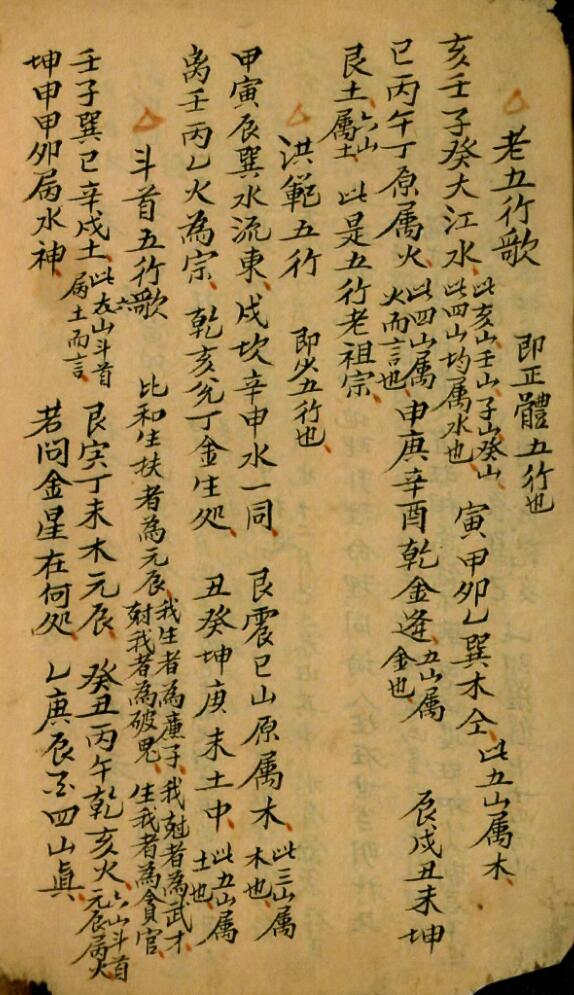 老五行歌 即正體五行也
亥壬子癸大江水 此亥山壬山子山癸山此四山均属水也 寅甲卯乙巽木仝 此五山属木
巳丙午丁原属火 此四山属火而言也 申庚辛酉乾金逢 五山属金也 辰戌丑未坤
艮土 六山属土 此是五行老祖宗
洪範五行 即火五行也
甲寅辰巽水流東 戌坎辛申水一同 艮震巳山原属木 此三山属木也
离壬丙乙火為宗 乾亥兊丁金生处 丑癸坤庚未土中 此五山属土也
斗首五行歌 比和生扶者為元辰 我生者為廉子 我尅者為武才 尅我者為破鬼 生我者為貪官
壬子巽巳辛戌土 此六山斗首属土而言 艮寅丁未木元辰 癸丑丙午乾亥火 六山斗首元辰属火
坤申甲卯属水神 若问金星在何处 乙庚辰酉四山真